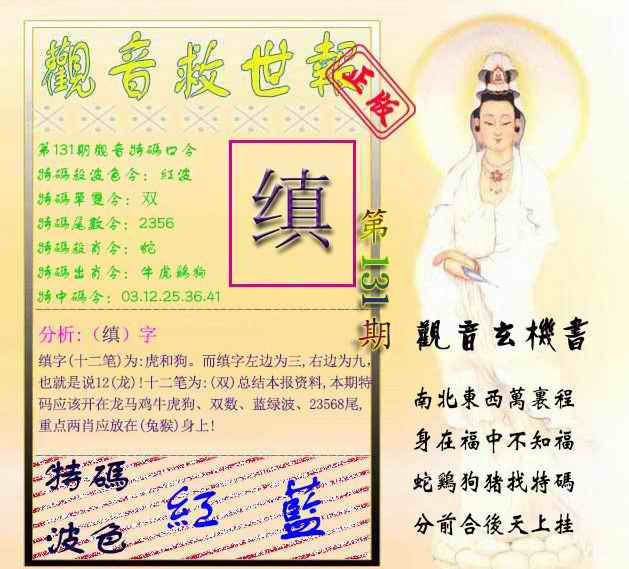 觀音救世報
正版
第131期觀音特碼口令
特碼殺波色令：紅波
特碼單雙令：双
特碼尾數令：2356
特碼殺肖令：蛇
特碼出肖令：牛虎鷄狗
特中碼令：03.12.25.36.41
缜
第131期
分析:（缜）字
缜字(十二笔)为:虎和狗。而缜字左边为三,右边为九,
也就是说12(龙)!十二笔为:(双)总结本报资料,本期特
码应该开在龙马鸡牛虎狗、双数、蓝绿波、23568尾,
重点两肖应放在(兔猴)身上!
特碼
波色
紅 藍
觀音玄機書
南北東西萬裏程
身在福中不知福
蛇鷄狗猪找特碼
分前合後天上挂